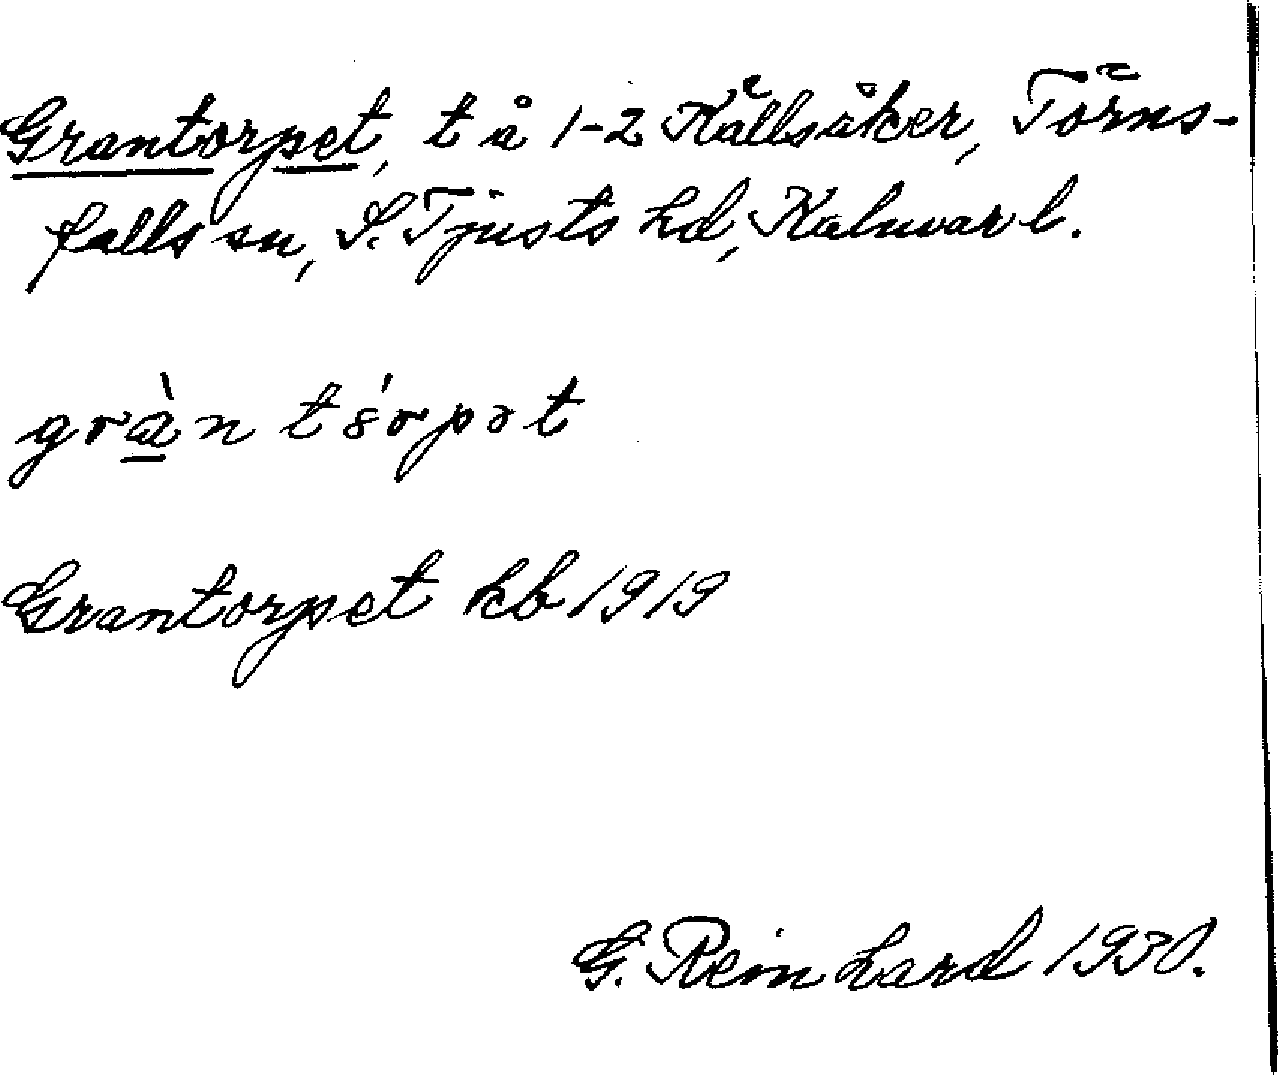 Grantorpet, t å 1-2 Källsåker, Törns-
falls sn, S. Tjusts hd, Kalmar l.
gràn tórpət
Grantorpet kb 1919
G. Reinhard 1930.